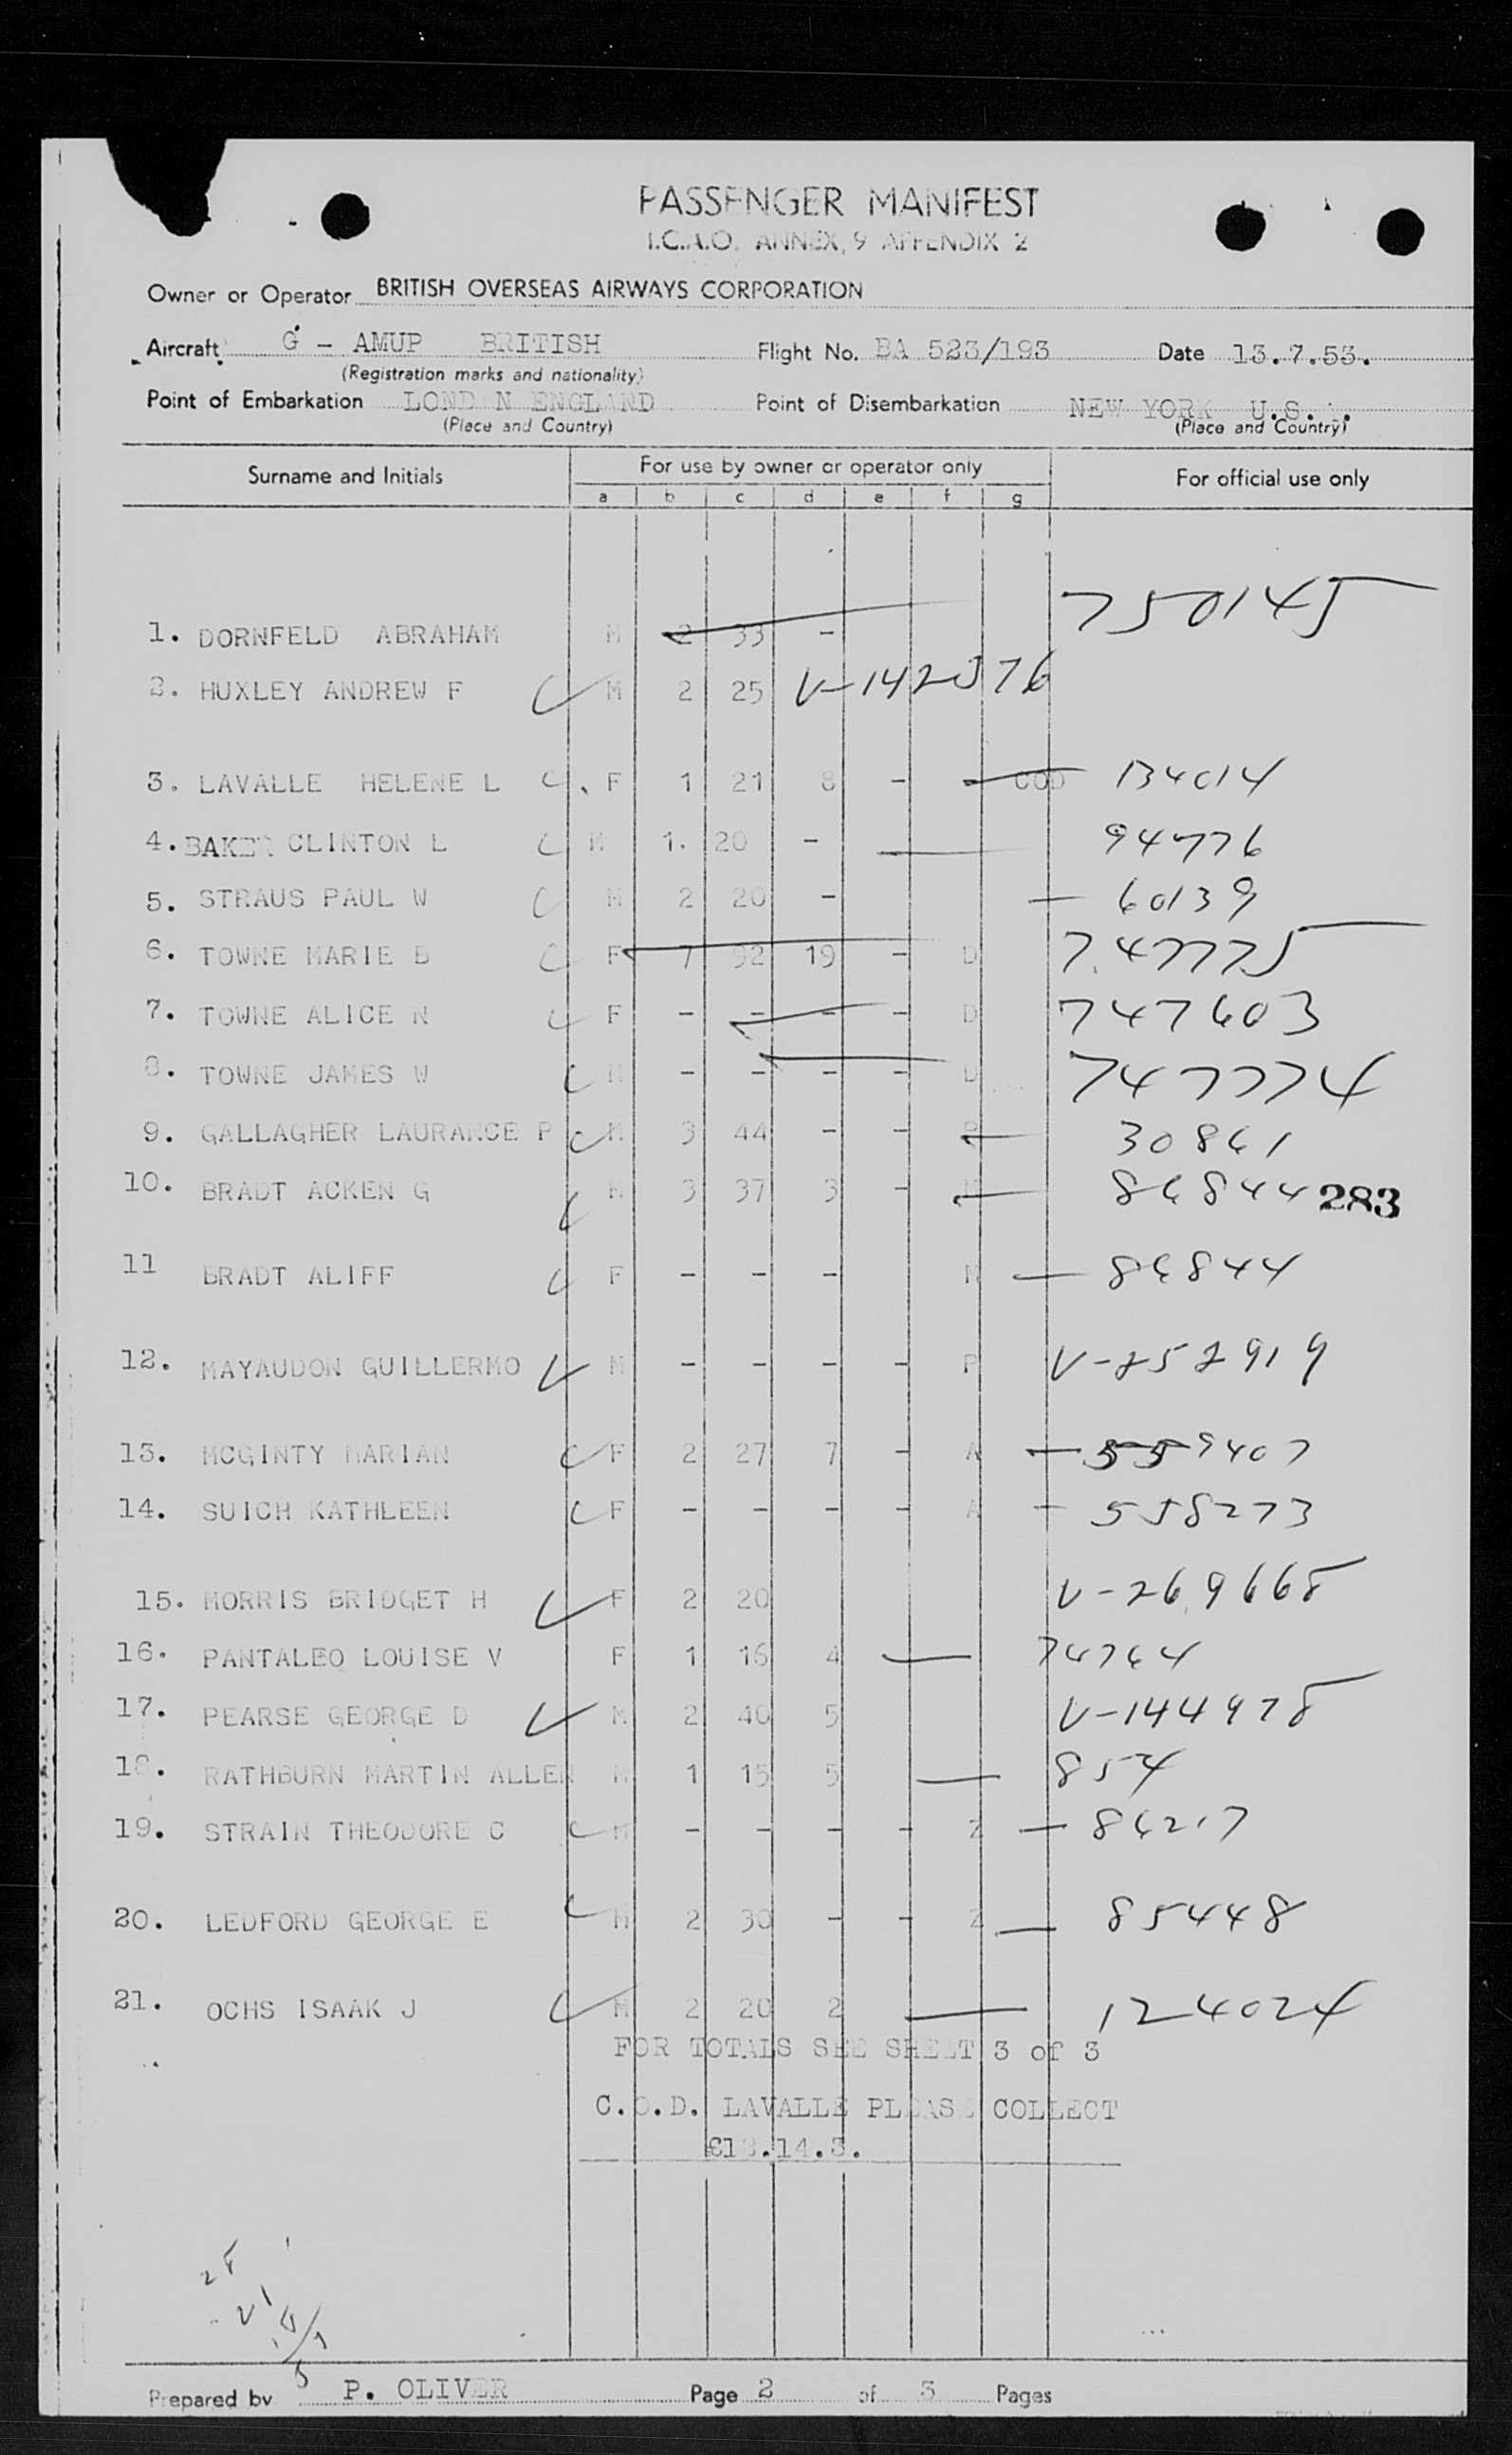 PASSENGER MANIFEST
I.C.A.O. ANNEX 9 APPENDIX 2
Owner or Operator BRITISH OVERSEAS AIRWAYS CORPORATION
Aircraft G - AMUP BRITISH Flight No. BA 523/193 Date 13.7.53.
(Registration marks and nationality)
Point of Embarkation LOND N ENGLAND Point of Disembarkation NEW YORK U.S. .
(Place and Country) (Place and Country)
Surname and Initials For use by owner or operator only For official use only
a b c d e f g
1. DORNFELD ABRAHAM M 2 33 - 750145
2. HUXLEY ANDREW F M 2 25 V-142576
3. LAVALLE HELENE L F 1 21 8 - COD 134014
4. BAKER CLINTON L M 1. 20 - 94776
5. STRAUS PAUL W M 2 20 - 60139
6. TOWNE MARIE B F 7 92 19 - D 747775
7. TOWNE ALICE N F - - - - D 747603
8. TOWNE JAMES W M - - - - D 747774
9. GALLAGHER LAURANCE P M 3 44 - - 30861
10. BRADT ACKEN G M 3 37 3 - 86844 283
11 BRADT ALIFF F - - - N 86844
12. MAYAUDON GUILLERMO M - - - - P V-252919
13. MCGINTY MARIAN F 2 27 7 - A 559407
14. SUICH KATHLEEN F - - - - A 558273
15. MORRIS BRIDGET H F 2 20 V-269665
16. PANTALEO LOUISE V F 1 16 4 74764
17. PEARSE GEORGE D M 2 40 5 V-144978
18. RATHBURN MARTIN ALLEN M 1 15 5 854
19. STRAIN THEODORE C M - - - - Z 86217
20. LEDFORD GEORGE E M 2 30 - - Z 85448
21. OCHS ISAAK J M 2 20 2 124024
FOR TOTALS SEE SHEET 3 of 3
C.O.D. LAVALLE PLEASE COLLECT
£13.14.3.
Prepared by P. OLIVER Page 2 of 3 Pages